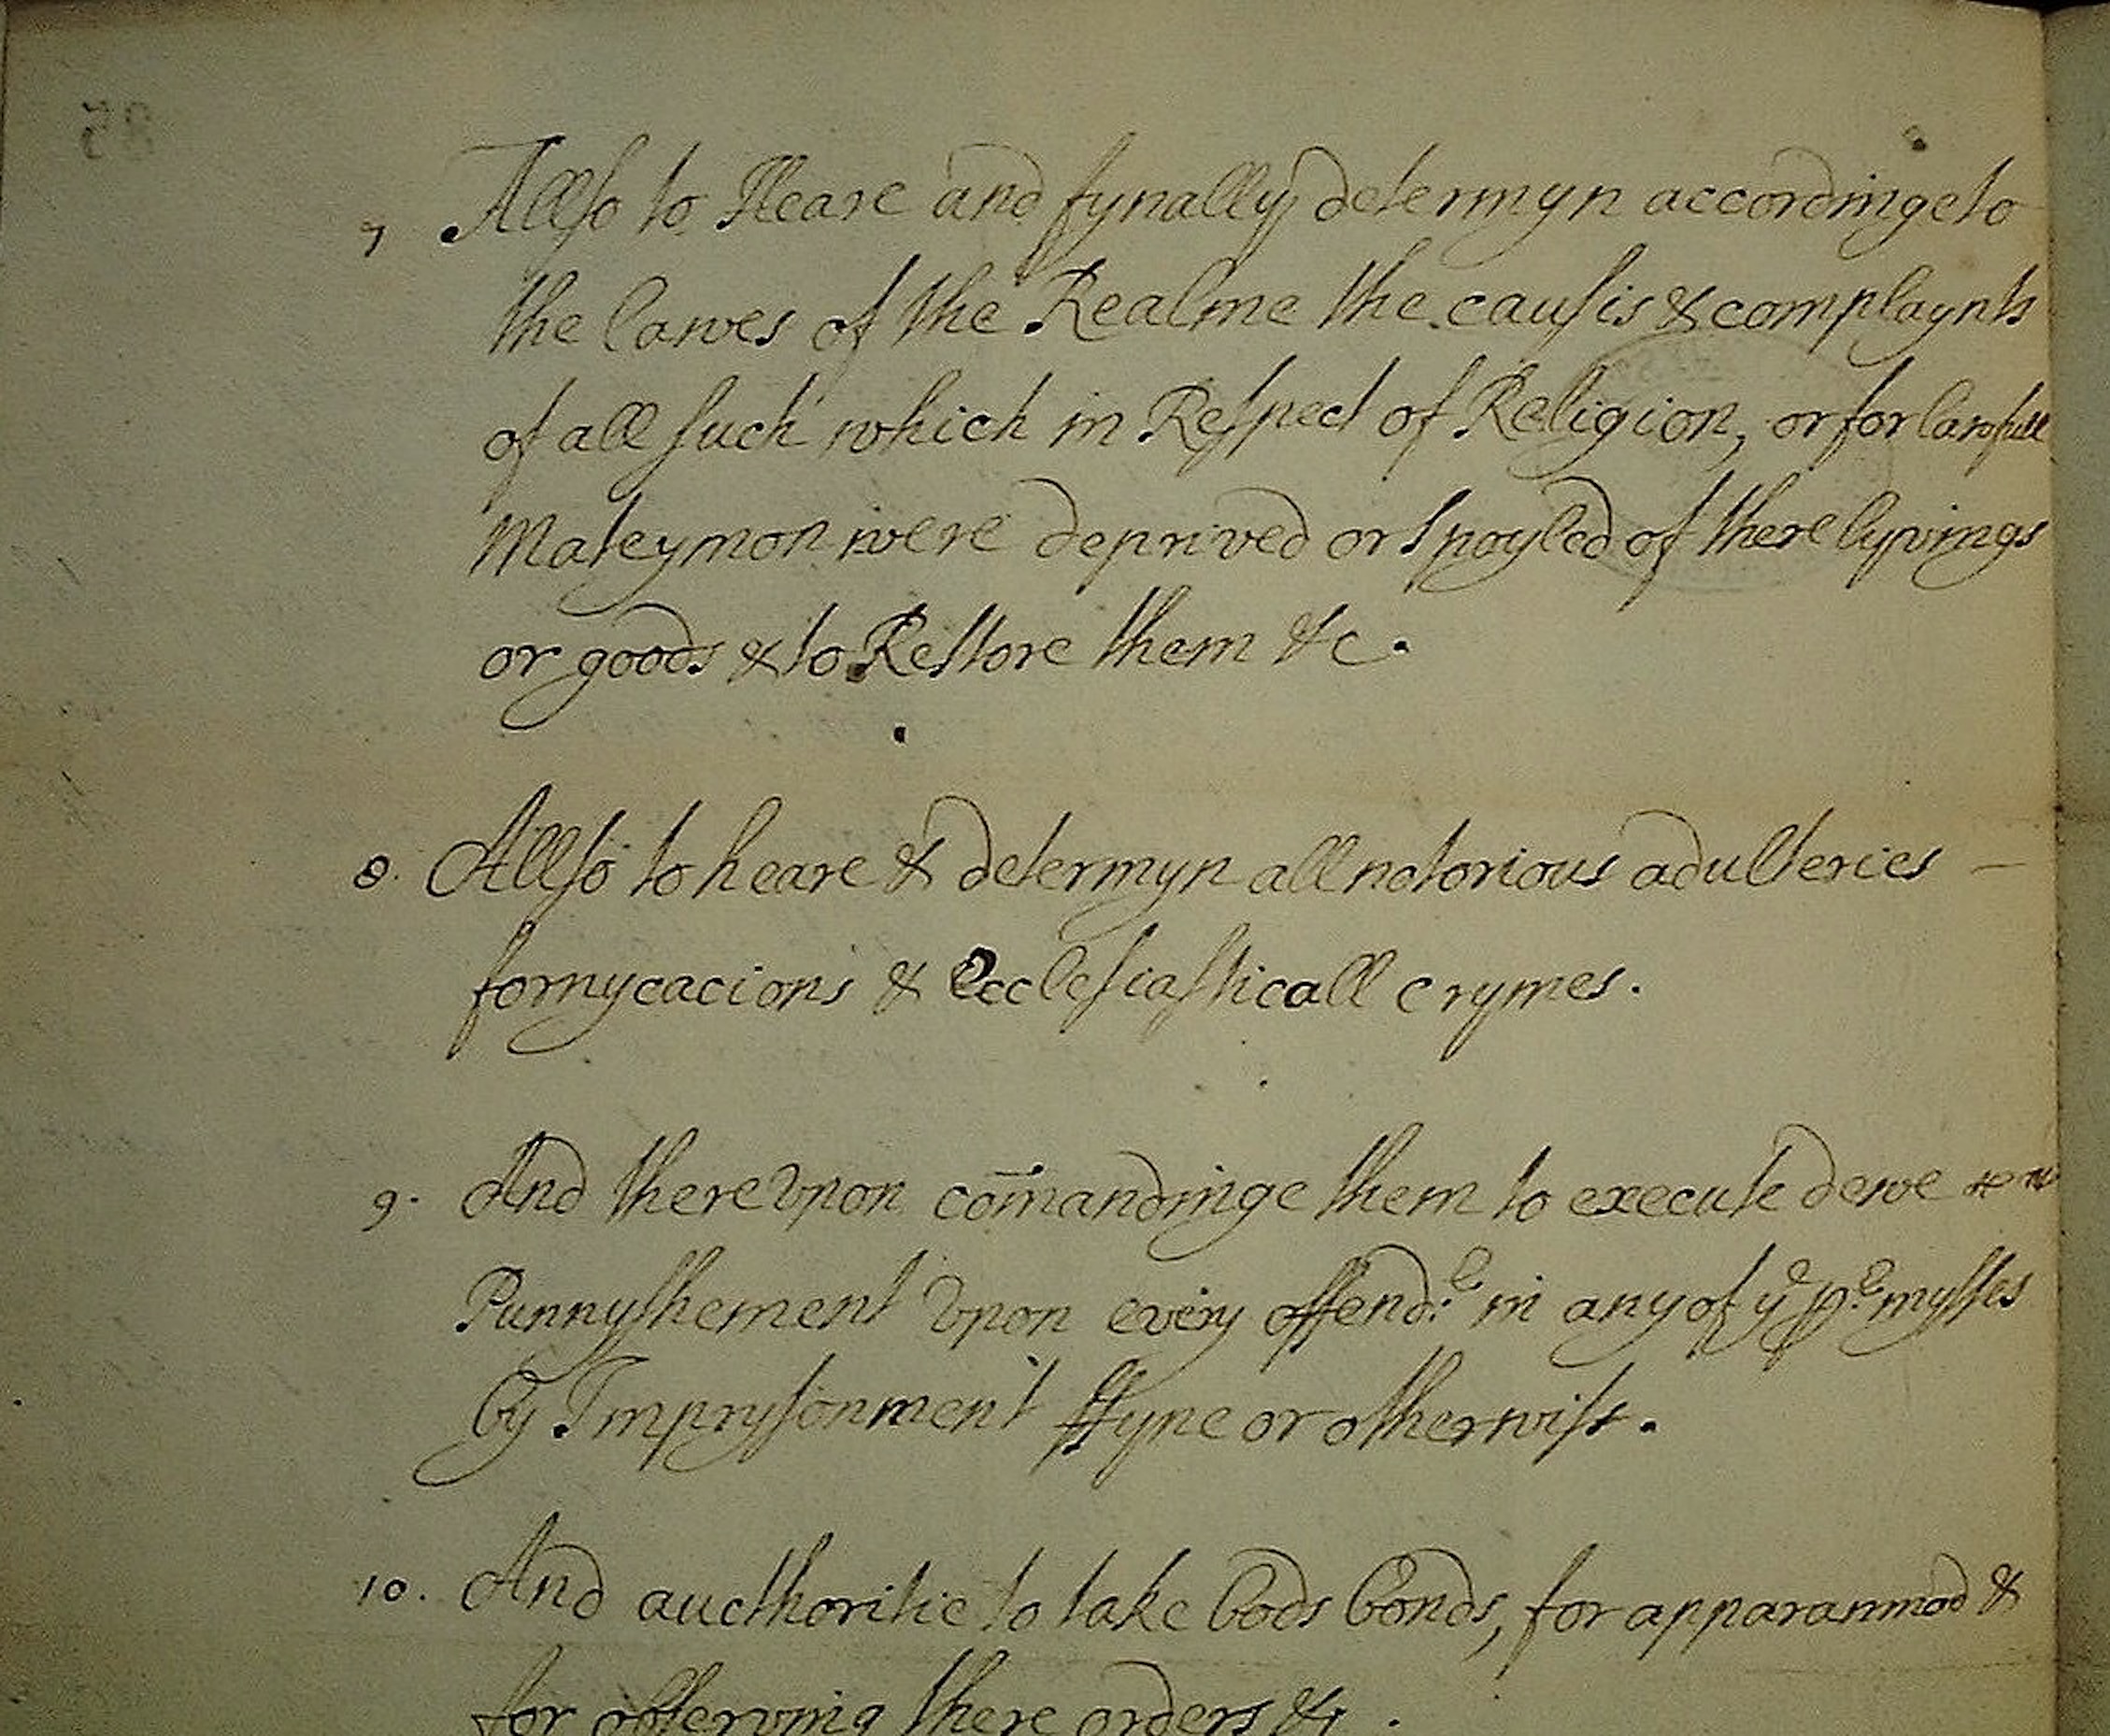 7 Allso to Heare and fynally determyn accordinge to
the lawes of the Realme the causis & complaynts
of all such which in Respect of Religion, or for lawfull
Mateymon were deprived or spoyled of there lyvings
or goods & to Restore them &c.
8. Allso to heare & determyn all notorious adulteries —
fornycacions & Ecclesiasticall crymes.
9. And there vpon com̄andinge them to execute dewe
Punnyshement vpon every offend:e in any of ye pe:mysses
By Imprysonment ffyne or otherwise.
10. And aucthoritie to take Bods Bonds, for &
for observing there orders &c.